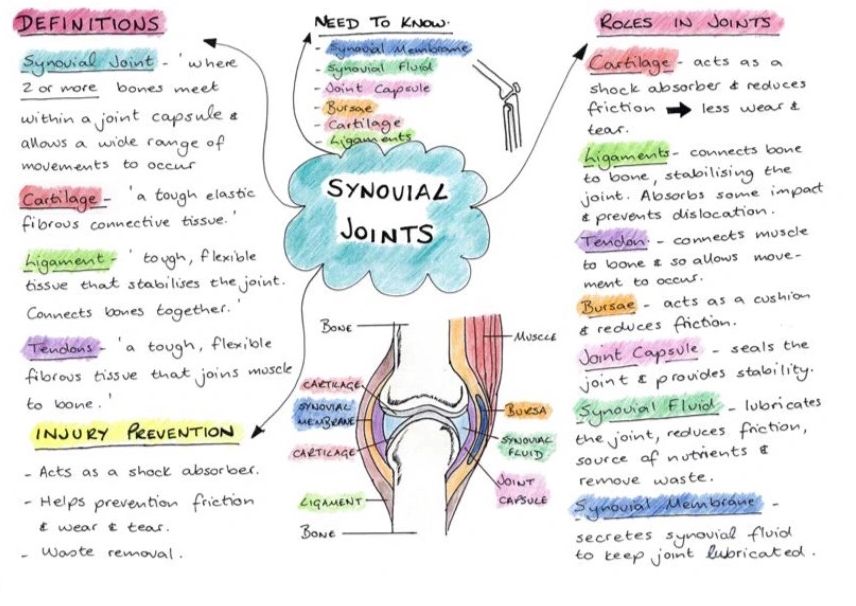 DEFINITIONS
Synovial Joint - 'where
2 or more bones meet
within a joint capsule &
allows a wide range of
movements to occur
Cartilage - 'a tough elastic
fibrous connective tissue.'
Ligament - 'tough, flexible
tissue that stabilises the joint.
Connects bones together.'
Tendons - 'a tough, flexible
fibrous tissue that joins muscle
to bone.'
INJURY PREVENTION
- Acts as a shock absorber.
- Helps prevention friction
& wear & tear.
- Waste removal.
NEED TO KNOW.
- Synovial Membrane
- Synovial Fluid
- Joint Capsule
- Bursae
- Cartilage
- Ligaments
SYNOVIAL
JOINTS
BONE
MUSCLE
CARTILAGE
SYNOVIAL
MEMBRANE
CARTILAGE
LIGAMENT
BONE
BURSA
SYNOVIAL
FLUID
JOINT
CAPSULE
ROLES IN JOINTS
Cartilage - acts as a
shock absorber & reduces
friction → less wear &
tear.
Ligaments - connects bone
to bone, stabilising the
joint. Absorbs some impact
& prevents dislocation.
Tendon - connects muscle
to bone & so allows move-
ment to occur.
Bursae - acts as a cushion
& reduces friction.
Joint Capsule - seals the
joint & provides stability.
Synovial Fluid - lubricates
the joint, reduces friction,
source of nutrients &
remove waste.
Synovial Membrane -
secretes synovial fluid
to keep joint lubricated.